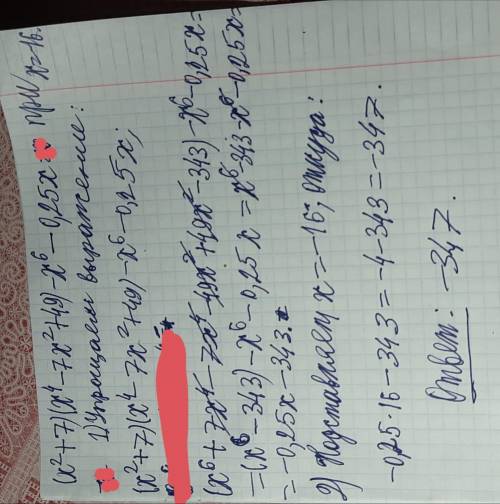 (x²+7)(x⁴-7x²+49)-x⁶-0,25x при x=16.
1) Упрощаем выражение:
(x²+7)(x⁴-7x²+49)-x⁶-0,25x;
(x⁶+7x⁴-7x⁴-49x²+49x²-343)-x⁶-0,25x=
=(x⁶-343)-x⁶-0,25x=x⁶-343-x⁶-0,25x=
=-0,25x-343.
2) Подставляем x=-16; откуда:
-0,25·16-343=-4-343=-347.
Ответ: -347.